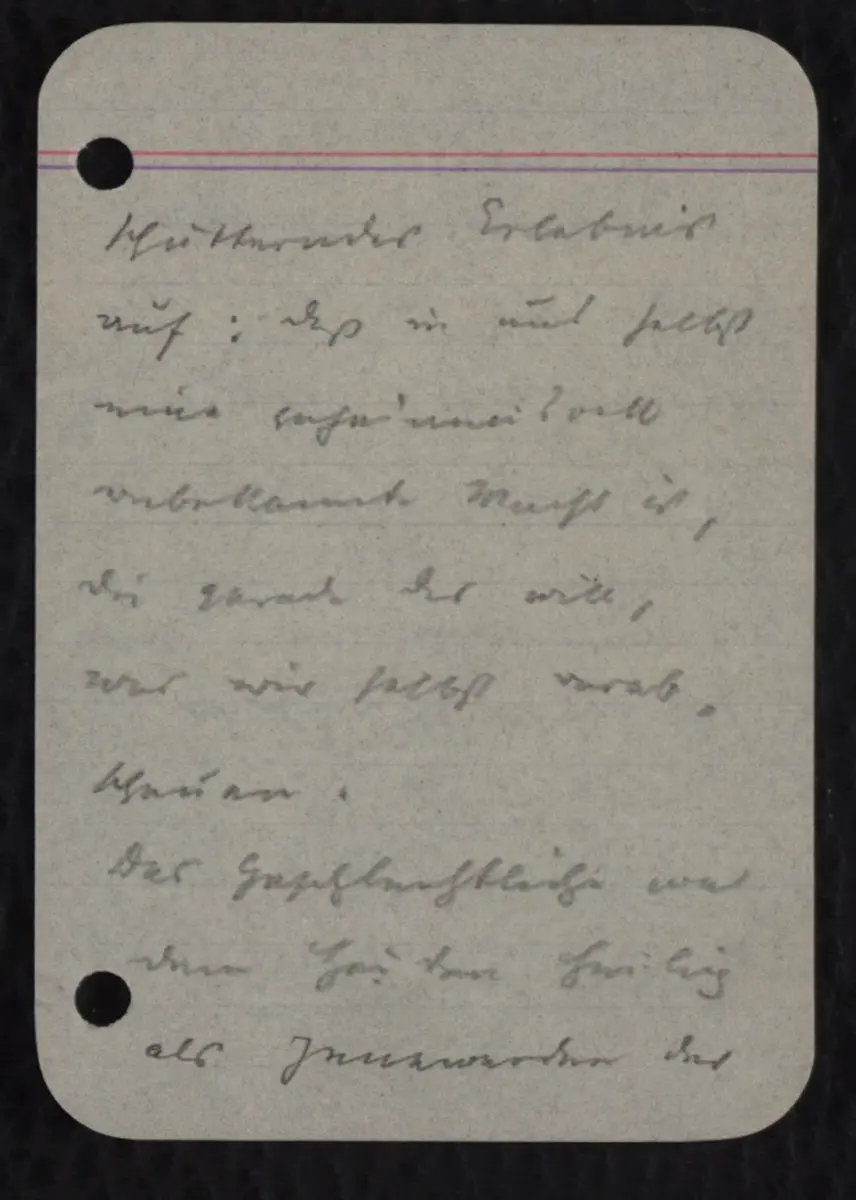 schütterndes Erlebnis
auf: daß in uns selbst
eine geheimnisvoll
unbekannte Macht ist,
die gerade das will,
was wir selbst verab-
scheuen.
Das Geschlechtliche war
dem Heiden heilig
als Innewerden des